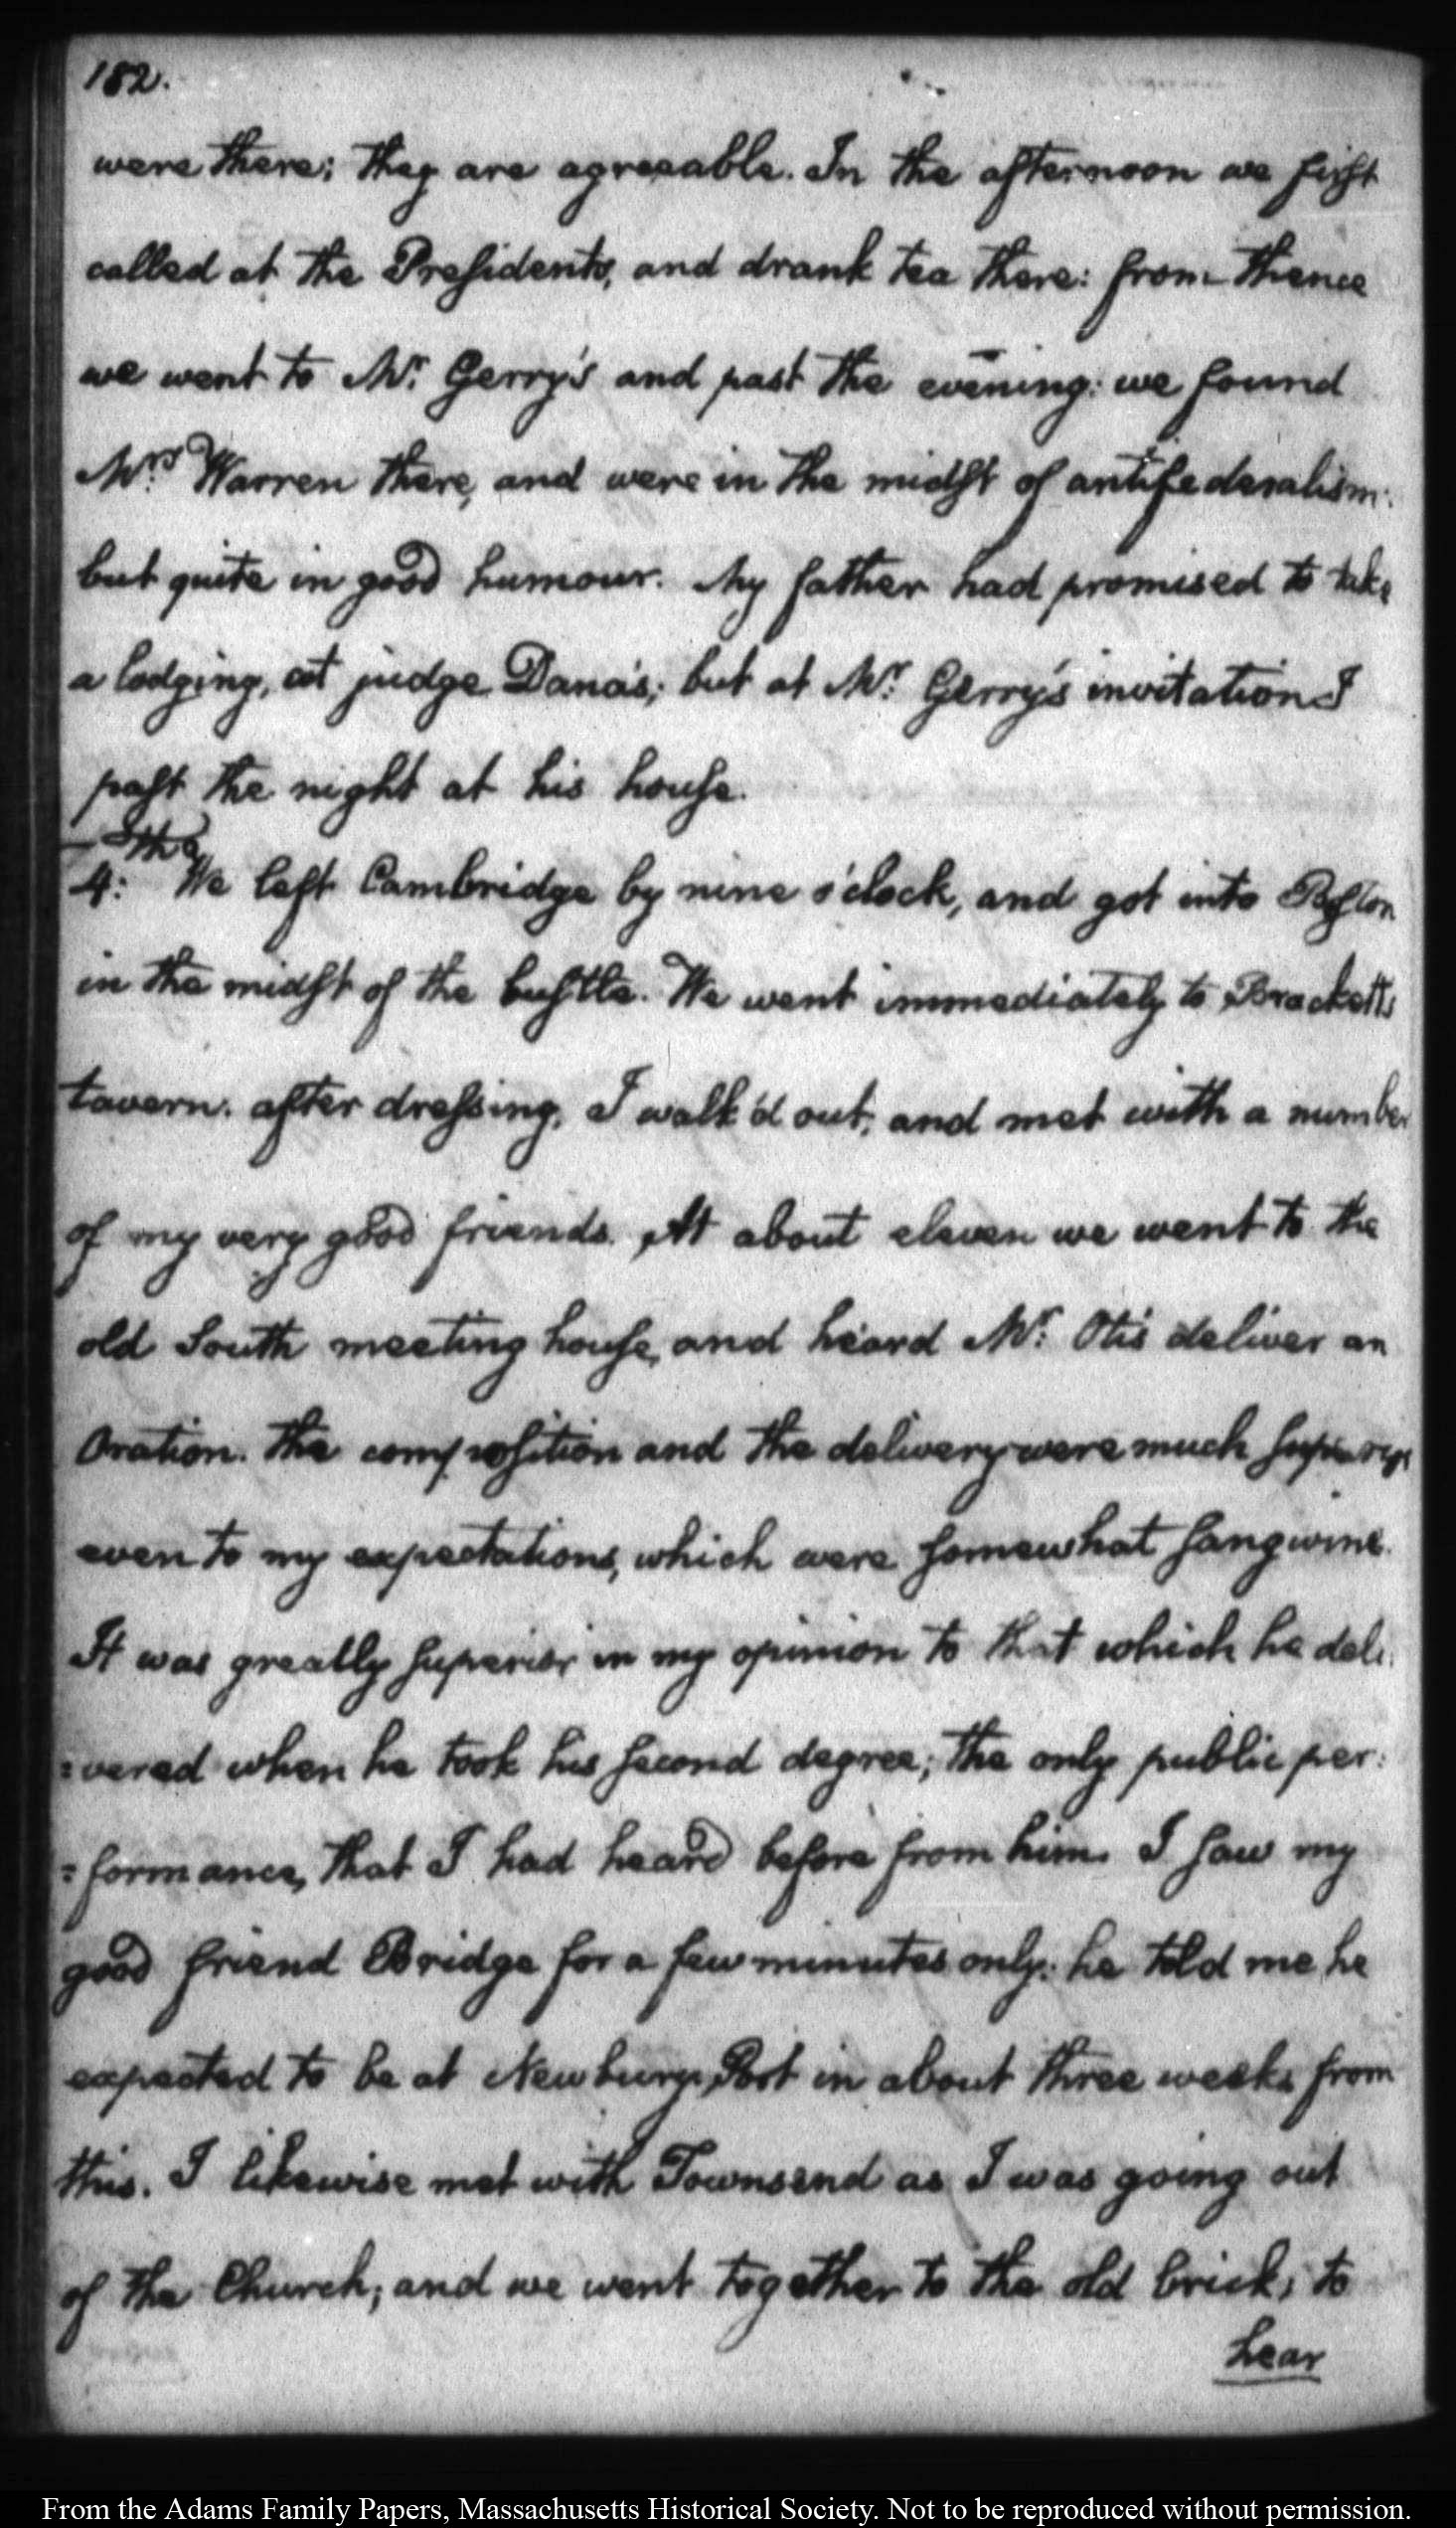 182.
were there; they are agreeable. In the afternoon we first
called at the Presidents, and drank tea there: from thence
we went to Mr. Gerry's and past the evening: we found
Mrs. Warren there, and were in the midst of antifederalism:
but quite in good humour. My father had promised to take
a lodging, at judge Dana's; but at Mr. Gerry's invitation I
past the night at his house.
4th. We left Cambridge by nine o'clock, and got into Boston
in the midst of the bustle. We went immediately to Bracketts
tavern. after dressing, I walk'd out, and met with a number
of my very good friends. At about eleven we went to the
old South meeting house, and heard Mr. Otis deliver an
Oration. the composition and the delivery were much superior
even to my expectations, which were somewhat sanguine.
It was greatly superior in my opinion to that which he deli:
:vered when he took his second degree; the only public per:
:formance, that I had heard before from him. I saw my
good friend Bridge for a few minutes only: he told me he
expected to be at Newbury-Port in about three weeks from
this. I likewise met with Townsend as I was going out
of the Church; and we went together to the old brick, to
hear
From the Adams Family Papers, Massachusetts Historical Society. Not to be reproduced without permission.